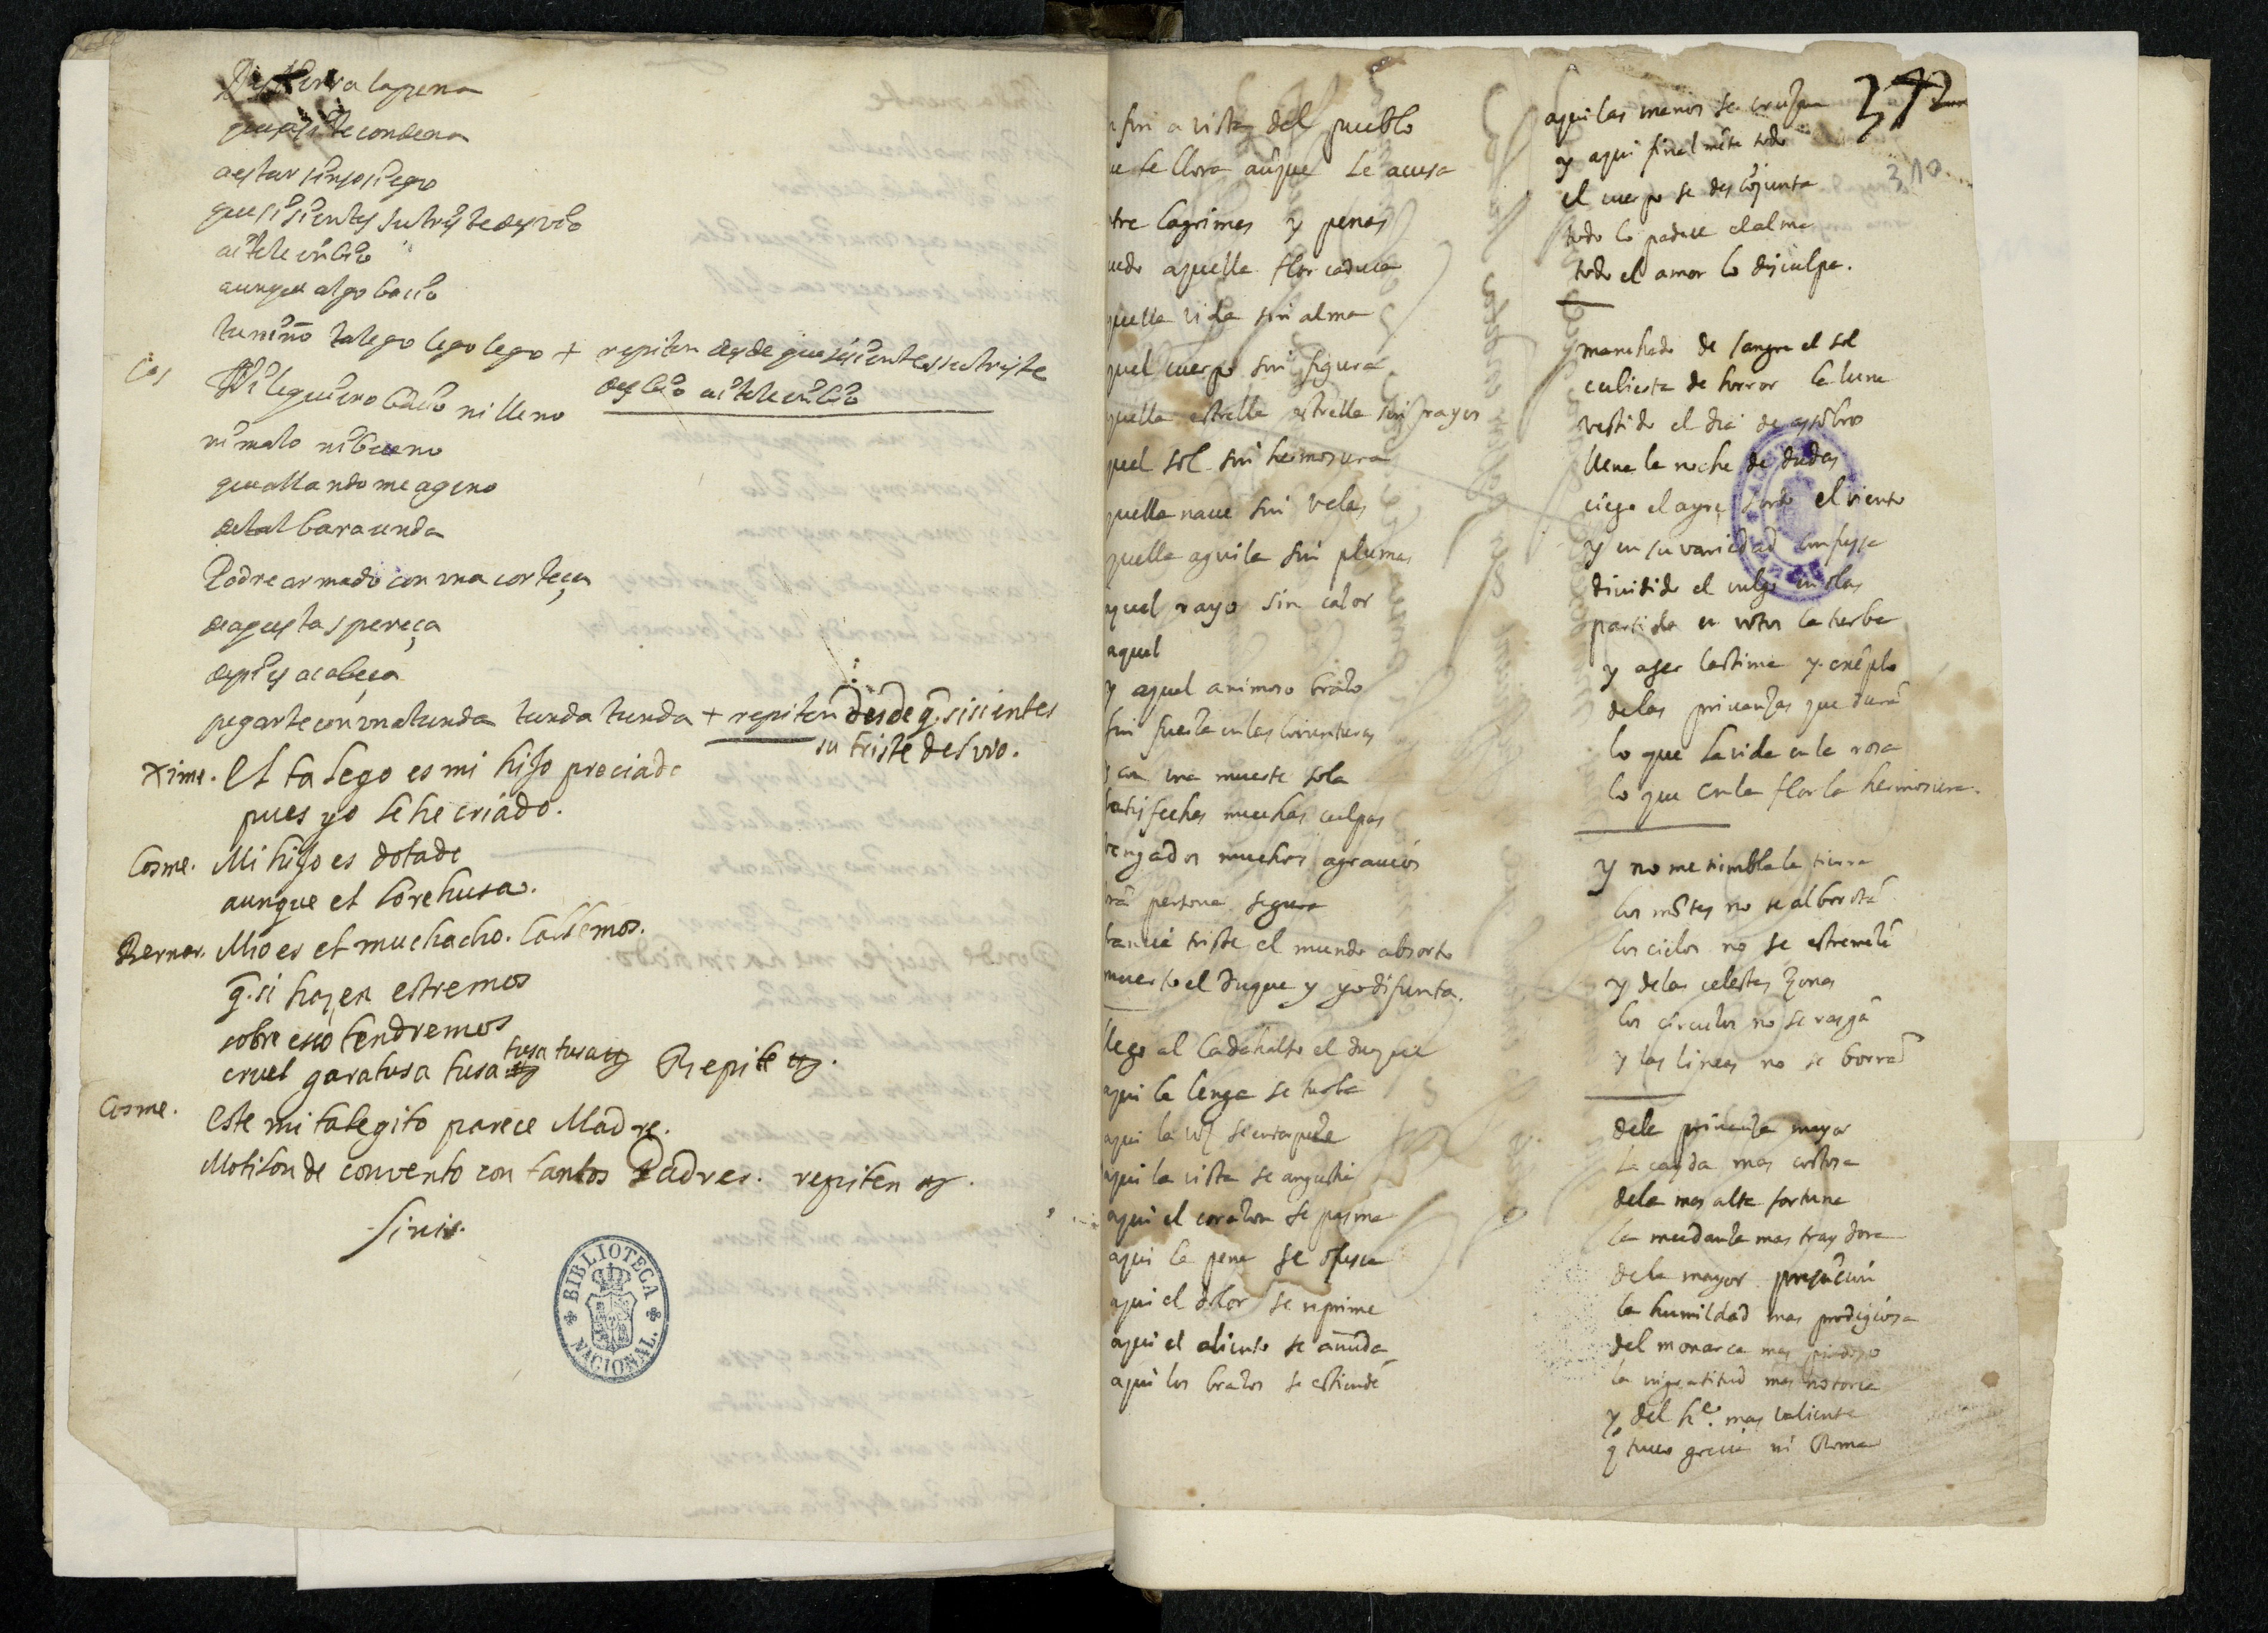 Destierra la pena
que assi te condena
a estar sin sosiego
que si sientes su triste desvio
ai te le inbio
aunque algo bacio
tu niño talego lego lego + repiten desde que si sientes su triste
desbio ai te le inbio
Cos
Ni le quiero bacio ni lleno
ni malo ni bueno
que allandome ageno
de tal baraunda
Padre armado con una corteça
de aquestas pereça
de pies a cabeça
pegarte con una tunda tunda tunda + repiten desde q̃ si sientes
su triste desvio.
Xime. El talego es mi hijo preciado
pues yo le he criado.
Cosme. Mi hijo es dotado
aunque el lo rehusa.
Bernar. Mio es el muchacho. Callemos.
q̃ si hazen estremos
sobre eso tendremos
cruel garatusa tusa tusa tusa Repiten.
Cosme. Este mi talegito parece Madre.
Motilon de convento con tantos Padres. repiten.
finis.
BIBLIOTECA NACIONAL.
n fin a vista del pueblo
ue le llora aũque le acusa
tre lagrimas y penas
uedo aquella flor caduca
quella vida sin alma
quel cuerpo sin figura
quella estrella estrella sin rayos
quel sol sin hermosura
quella naue sin velas
quella aguila sin plumas
quel rayo sin calor
aquel
y aquel animoso brazo
sin fuerza en las
y con una muerte sola
satisfechas muchas culpas
vengados muchos agrauios
persona segura
triste el mundo absorto
muerto el Duque y yo difunta.
llego al Cadahalso el duque
aqui la lenga se turba
aqui la voz se entorpeze
aqui la vista se angustia
aqui el corazon se pasma
aqui la pena se ofusca
aqui el dolor se reprime
aqui el aliento se añuda
aqui los brazos se estiendẽ
372
310
aqui las manos se cruzan
y aqui finalmẽte todo
el cuerpo se descõjunta
todo lo padece el alma
todo el amor lo disculpa.
manchado de sangre el sol
cubierta de horror la luna
vestido el dia de asõbro
llena la noche de dudas
ciego el ayre sordo el viento
y en su variedad confussa
diuidido el vulgo en olas
partida en votos la turba
y a ser lastima y exẽplo
de las priuanzas que durã
lo que la vida en la rosa
lo que en la flor la hermosura.
y no me tiembla la tierra
los mõtes no se alborotã
los cielos no se estremezẽ
y de las celestes zonas
los circulos no se rasgã
y las lineas no se borrã
de la priuanza mayor
la cayda mas costosa
de la mas alta fortuna
la mudanza mas traydora
de la mayor presũcion
la humildad mas prodigiosa
del monarca mas piadoso
la ingratitud mas notoria
y del hᵉ. mas valiente
q̃ tuuo grecia ni Roma